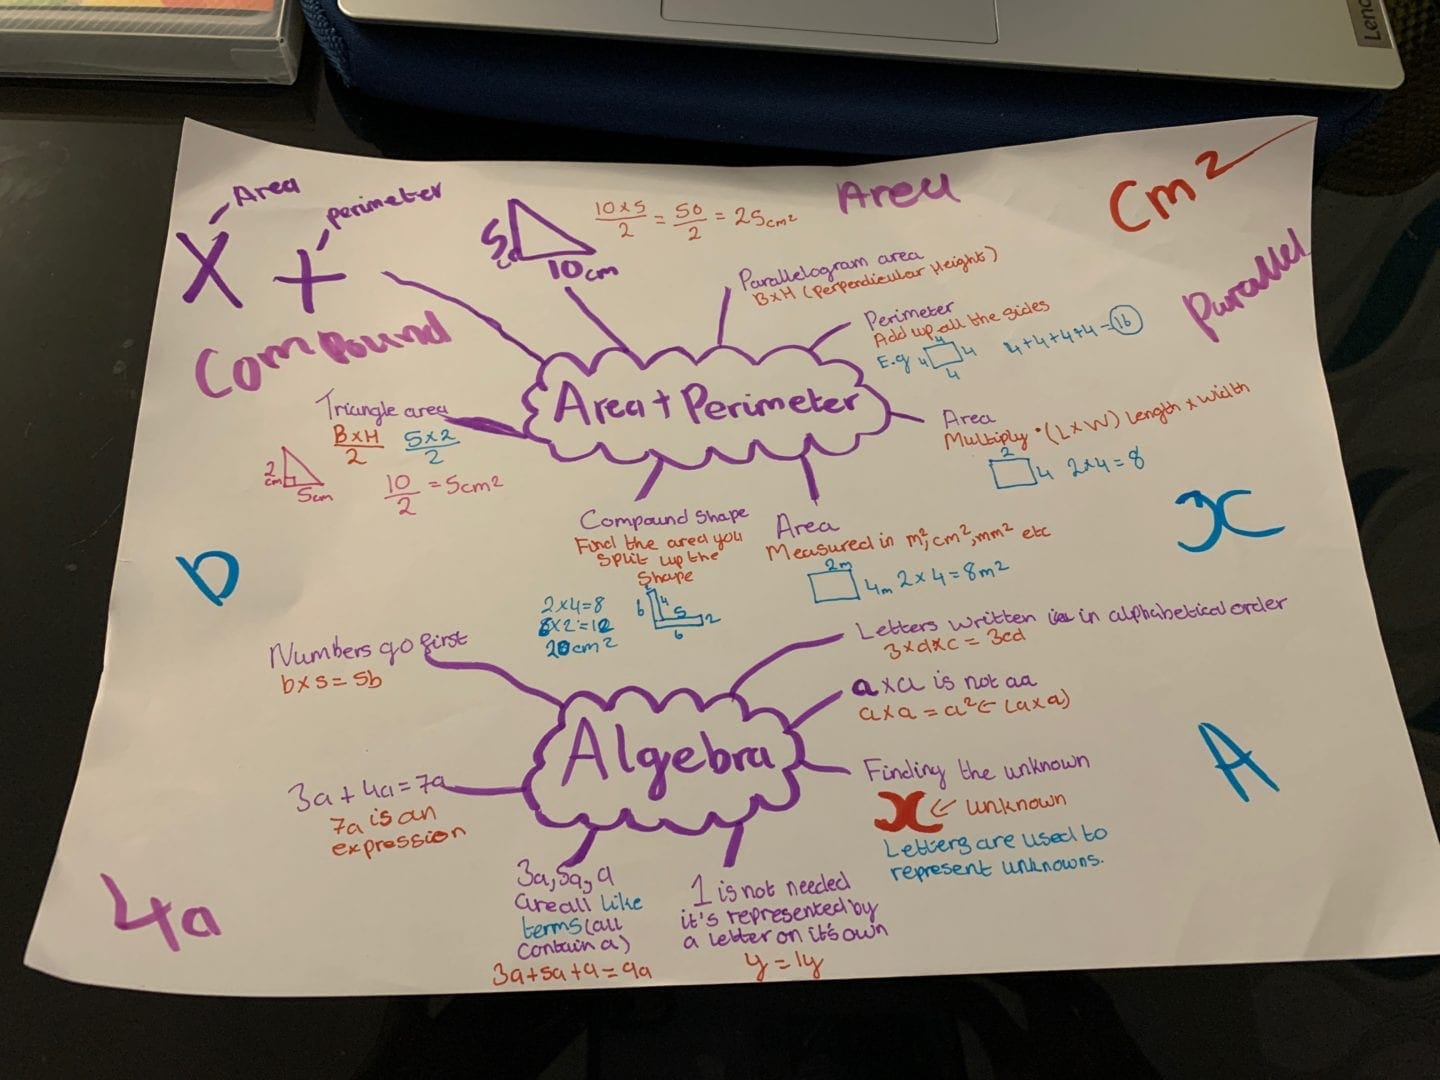 Area
perimeter
X +
Compound
5
cm
10cm
10x5/2 = 50/2 = 25cm²
Area
Cm²
Parallel
Parallelogram area
BxH (Perpendicular Height)
Perimeter
Add up all the sides
E.g 4 4 4 4 4+4+4+4=16
Area + Perimeter
Area
Multiply • (LxW) Length x width
2
4 2x4=8
Triangle area
BxH/2 5x2/2
2
cm
5cm
10/2 = 5cm²
Compound Shape
Find the area you
Split up the
Shape
2x4=8
6x2=12
20cm²
6 4 5 2
6
Area
Measured in m², cm², mm² etc
2m
4m 2x4=8m²
x
b
Numbers go first
bx5=5b
Letters written in alphabetical order
3xdxc = 3cd
axa is not aa
axa = a² ← (axa)
Algebra
Finding the unknown
x ← unknown
Letters are used to
represent unknowns.
A
3a+4a=7a
7a is an
expression
4a
3a, 5a, a
are all like
terms (all
contain a)
3a+5a+a=9a
1 is not needed
it's represented by
a letter on it's own
y=1y